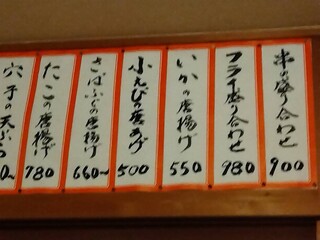 串の盛り合わせ 900
フライ盛り合わせ 980
いかの唐揚げ 550
小えびの唐あげ 500
さばふぐの唐揚げ 660~
たこの唐揚げ 780
穴子の天ぷら 0~